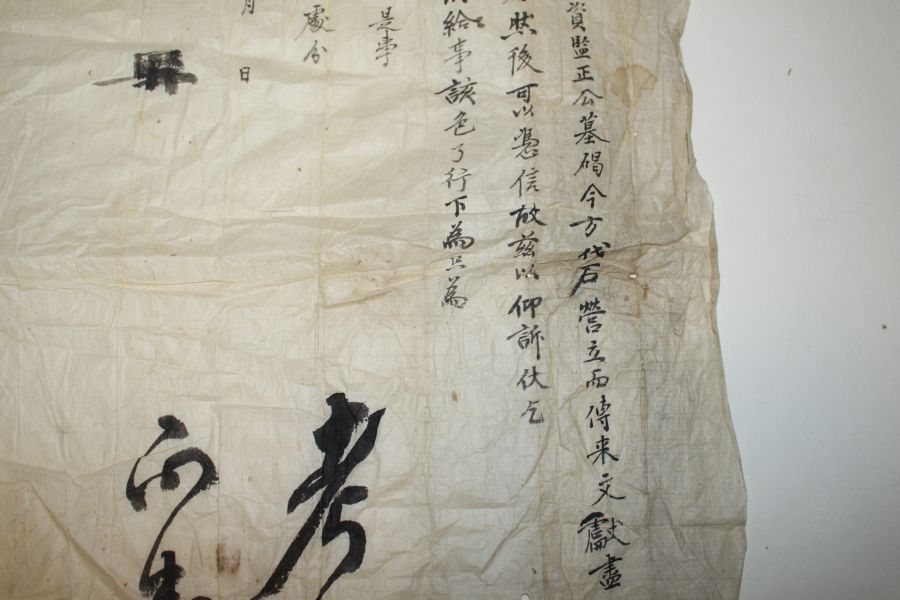 資監正公墓碣今方伐石營立而傳来文獻盡
然後可以憑信故玆以仰訴伏乞
給事該色了行下爲只爲
是事
處分
月 日
考